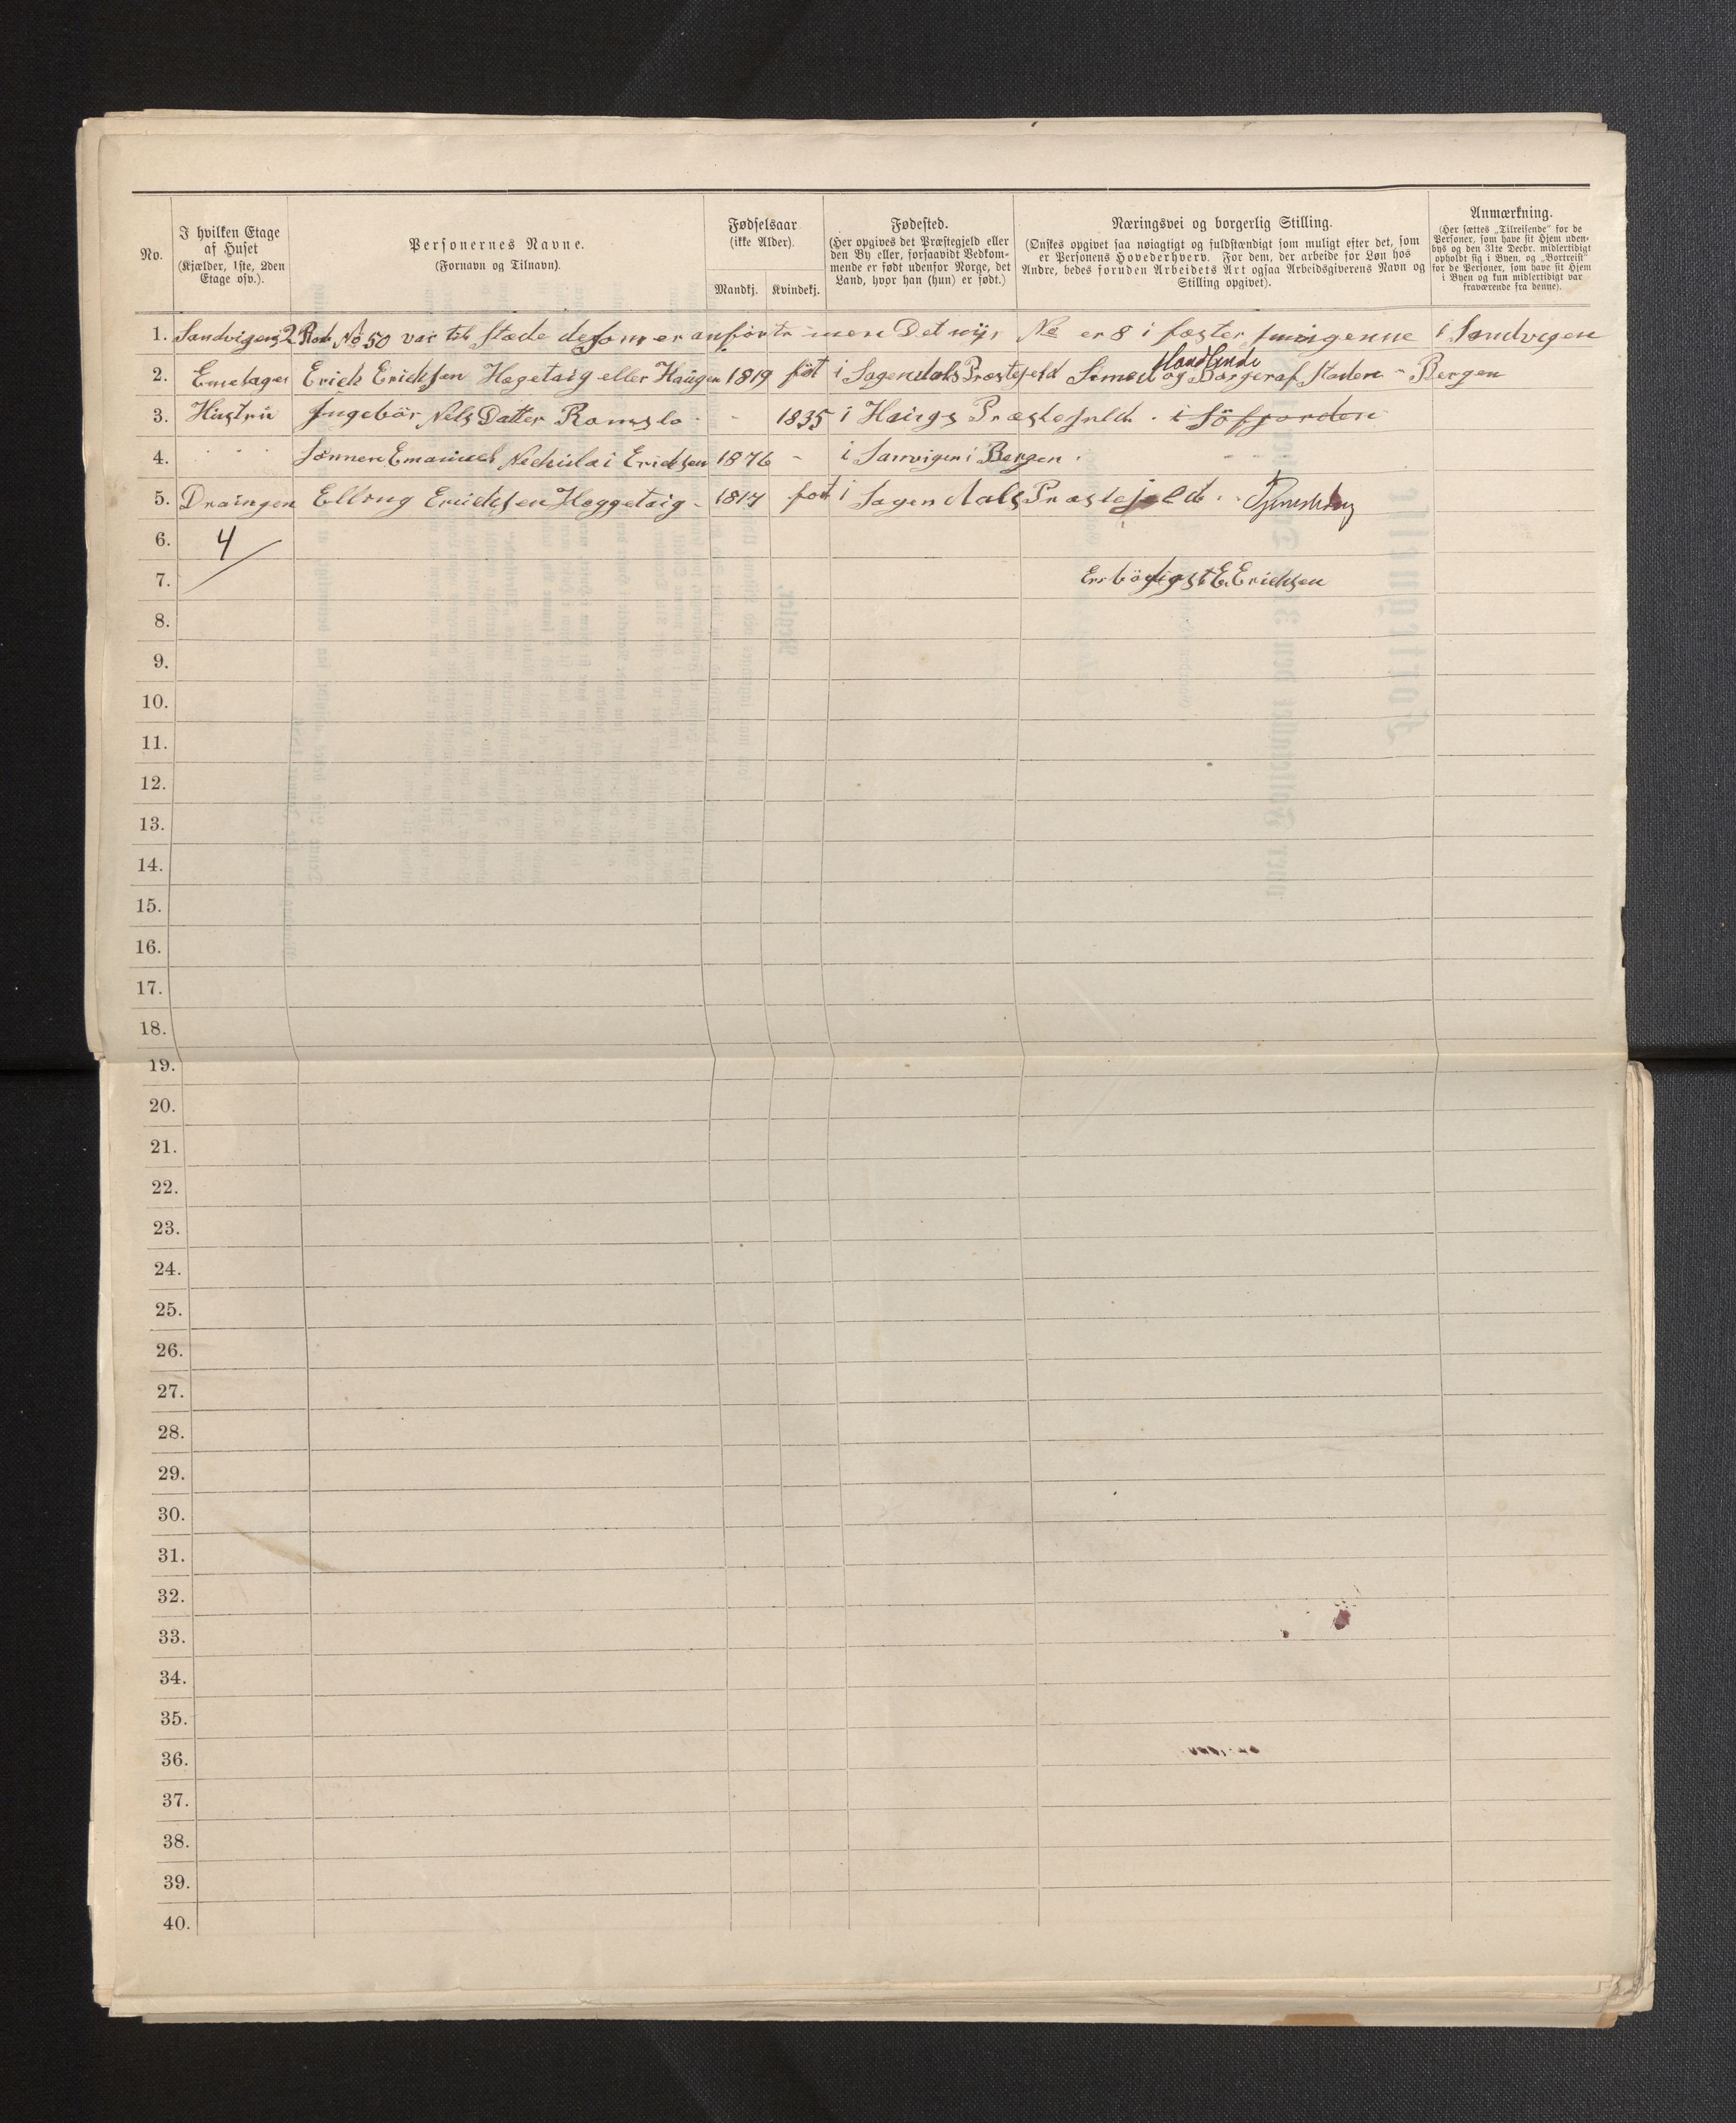 No.
I hvilken Etage
af Huset
(Kjælder, 1ste, 2den
Etage osv.).
Personernes Navne.
(Fornavn og Tilnavn).
Fødselsaar
(ikke Alder).
Mandkj. Kvindekj.
Fødested.
(Her opgives det Præstegjeld eller
den By eller, forsaavidt Vedkom-
mende er født udenfor Norge, det
Land, hvor han (hun) er født.)
Næringsvei og borgerlig Stilling.
(Ønskes opgivet saa nøiagtigt og fuldstændigt som muligt efter det, som
er Personens Hovederhverv. For dem, der arbeide for Løn hos
Andre, bedes foruden Arbeidets Art ogsaa Arbeidsgiverens Navn og
Stilling opgivet).
Anmærkning.
(Her sættes „Tilreisende“ for de
Personer, som have sit Hjem uden-
bys og den 31te Decbr. midlertidigt
opholdt sig i Byen, og „Bortreist“
for de Personer, som have sit Hjem
i Byen og kun midlertidigt var
fraværende fra denne).
1. Sandvigens 2 Rode No 50 var til stæde desom er anførte men Det nÿe No er 8 i i Sandvigen
Handlende
2. Erich Erichsen Hægetvig eller Haugen 1819 föt i Sogendals Præstegjeld og Borger af Staden - Bergen
3. Hustrü Jngebör Nels Datter Romslo - - 1835 i Haügs Præstegjeld . i Söfjorden
4. Sønnen Emanuel Nechulai Erichsen 1876 - i Sanvigen i Bergen .
5. Draingen Ellrng Erichsen Heggetvig - 1817 fot i Sogendals Præstegjeld .
6. 4
7. Erbödigst E. Erichsen
8.
9.
10.
11.
12.
13.
14.
15.
16.
17.
18.
19.
20.
21.
22.
23.
24.
25.
26.
27.
28.
29.
30.
31.
32.
33.
34.
35.
36.
37.
38.
39.
40.